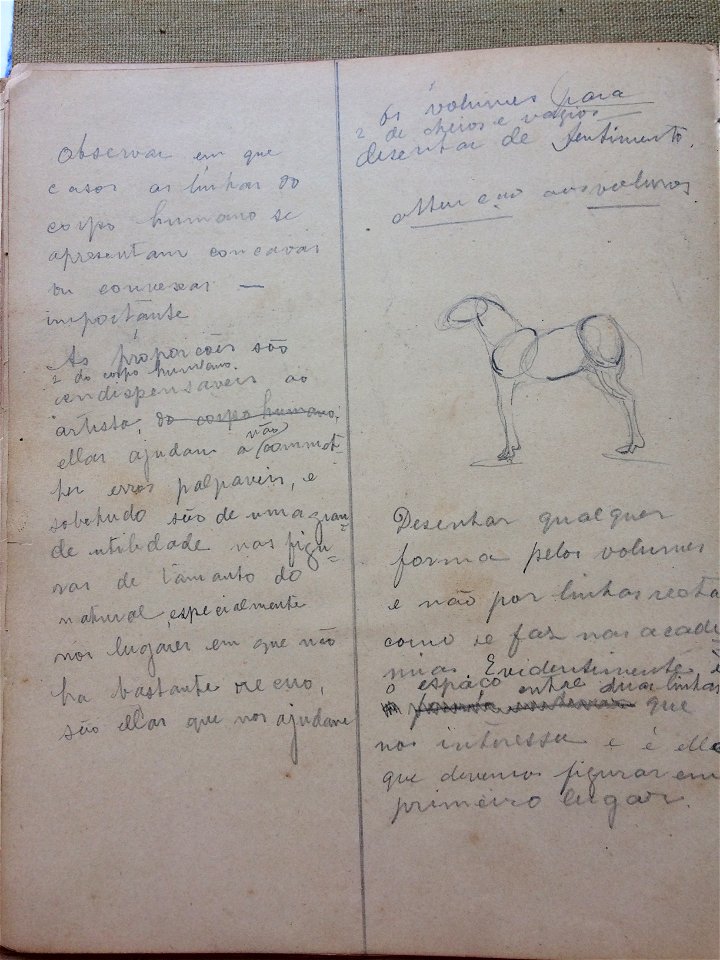 Observar em que
casos as linhas do
corpo humano se
apresentam concavas
ou convexas —
importante
As proporções são
2 do corpo humano
endispensaveis ao
artista, do corpo humano;
ellas ajudam a não commet-
ter erros palpaveis, e
sobetudo são de uma gran-
de utilidade nas figu-
ras de tamanto do
natural, especialmente
nos lugares em que não
ha bastante recuo,
são ellas que nos ajudam
Os volumes para
2 de cheios e vazios
desenhar de sentimento.
attenção aos volumes
Desenhar qualquer
forma pelos volumes
e não por linhas recta
como se faz nas acade
mias Evidentimente é
o espaço entre duas linhas
que
nos interessa e é elle
que devemos figurar em
primeiro lugar.